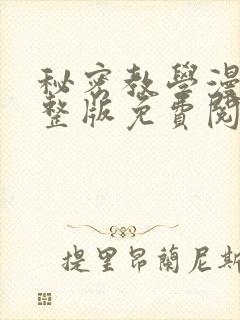 秘密教學漫
整版免費閱
提里昂蘭尼斯